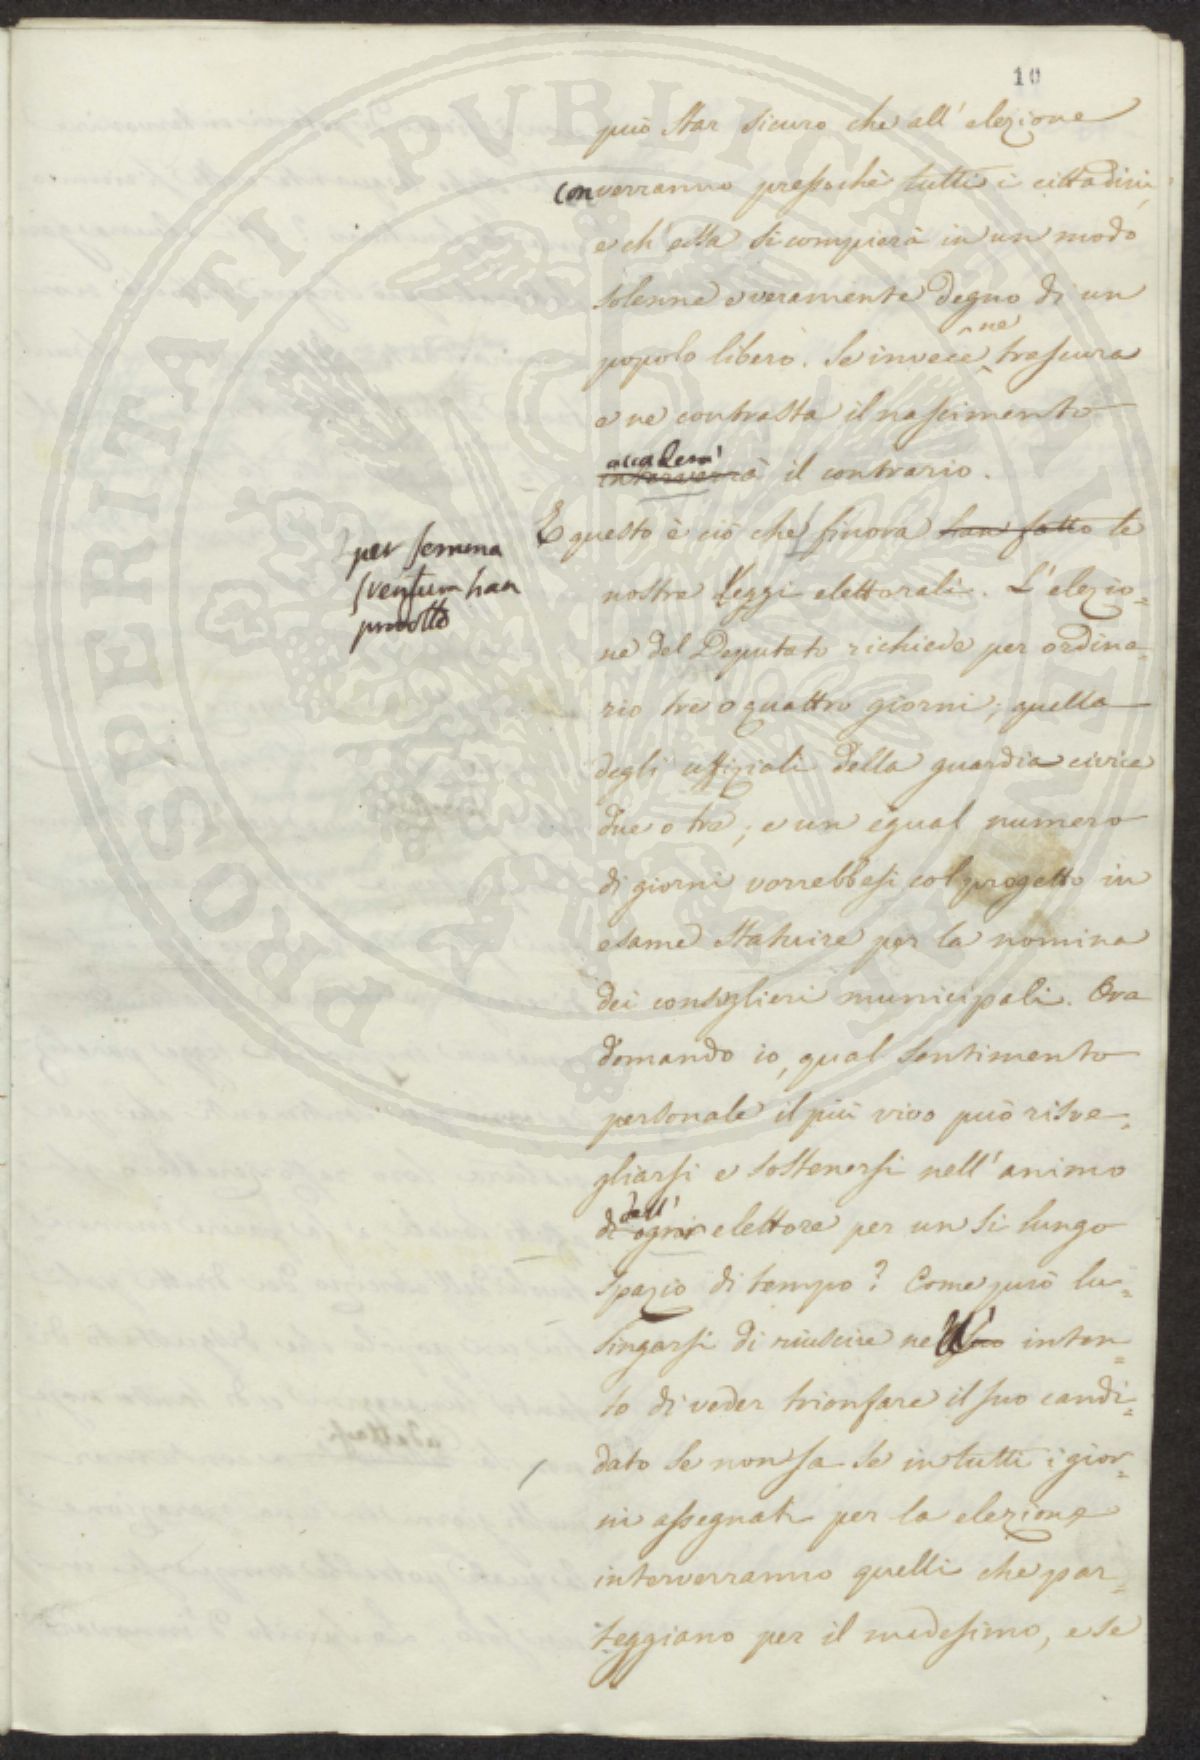 10
può star sicuro che all'elezione
converranno pressochè tutti i cittadini,
e ch'essa si compierà in un modo
solenne e veramente degno di un
popolo libero. Se invece ne trascura
e ne contrasta il nascimento
accaderà
interverrà il contrario.
E questo è ciò che finora han fatto le
per somma
sventura han
prodotto
nostre leggi elettorali. L'elezio=
ne del Deputato richiede per ordina=
rio tre o quattro giorni; quella
degli uffiziali della guardia civica
due o tre; e un egual numero
di giorni vorrebbesi col progetto in
esame statuire per la nomina
dei consiglieri municipali. Ora
domando io, qual sentimento
personale il più vivo può risve=
gliarsi e sostenersi nell'animo
dell'
di ogni elettore per un sì lungo
spazio di tempo? Come può lu=
singarsi di riuscire nell' inten=
to di veder trionfare il suo candi=
dato se non sa se in tutti i gior=
ni assegnati per la elezione
interverranno quelli che par=
teggiano per il medesimo, e se
PROSPERITATI PUBLICAE